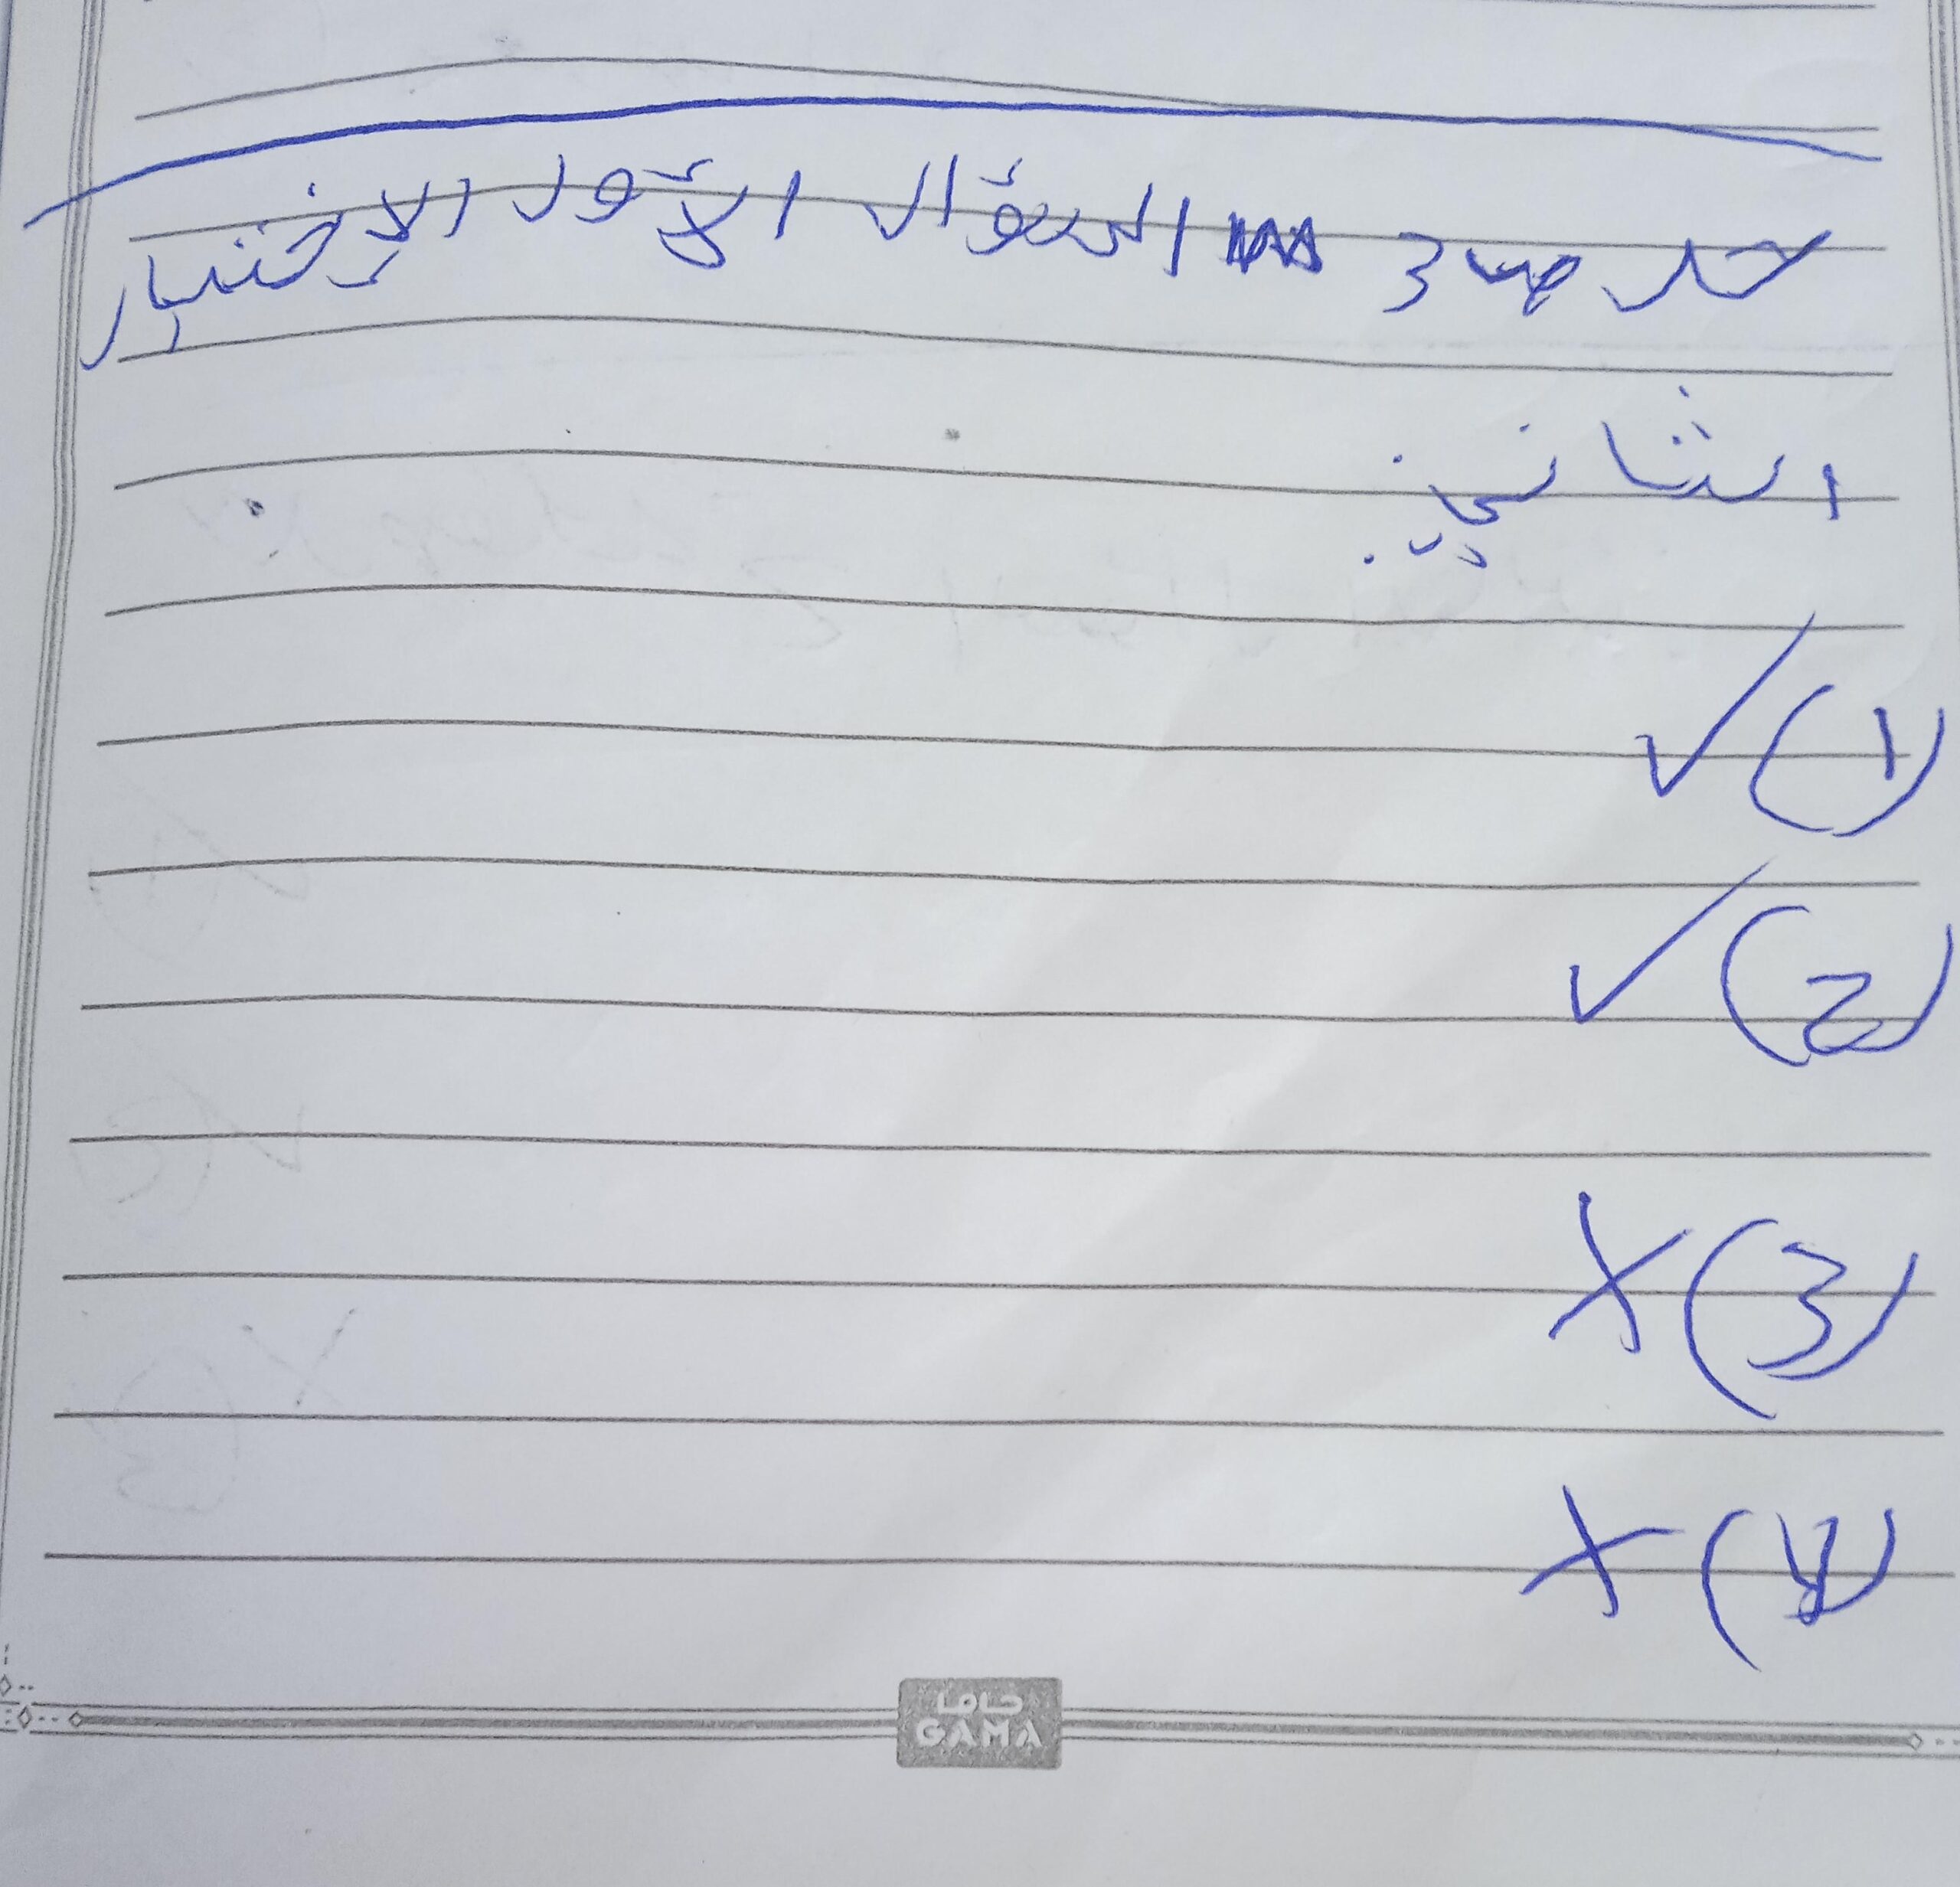 حل ص 3 السؤال الأول الإختبار
الثاني:
(1) ✓
(2) ✓
(3) X
(4) X
جاما
GAMA